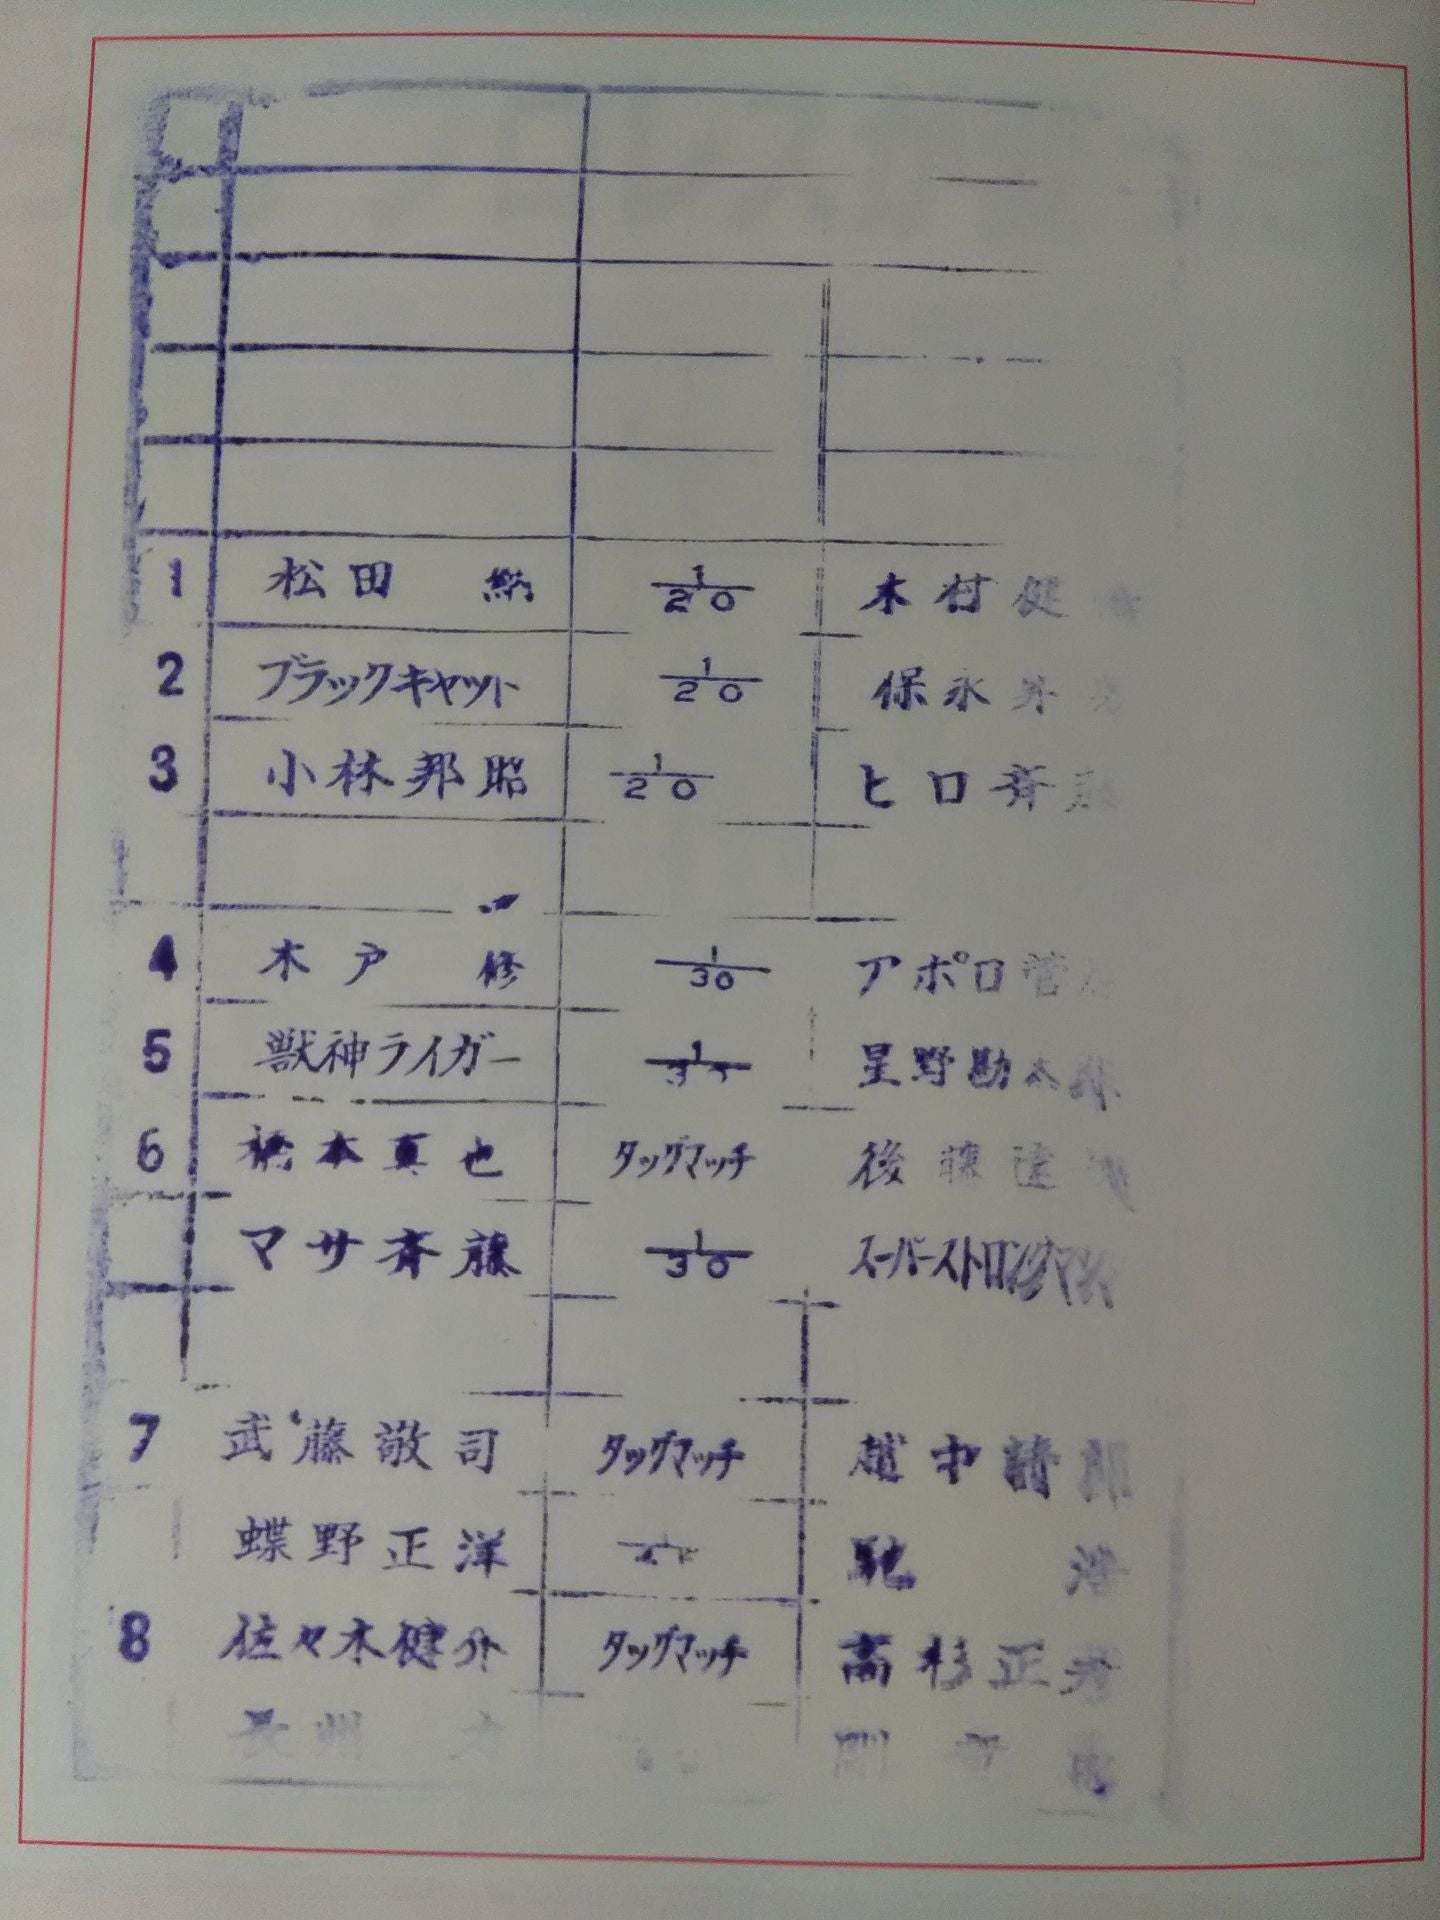 1 松田 納 1/20 木村健
2 ブラックキャット 1/20 保永昇
3 小林邦昭 1/20 ヒロ斉藤
4 木戸 修 1/30 アポロ菅
5 獣神ライガー 1/30 星野勘太郎
6 橋本真也 タッグマッチ 後藤達
マサ斉藤 1/30 スーパーストロングマシン
7 武藤敬司 タッグマッチ 越中詩郎
蝶野正洋 馳 浩
8 佐々木健介 タッグマッチ 高杉正彦
長州 力 剛 竜馬